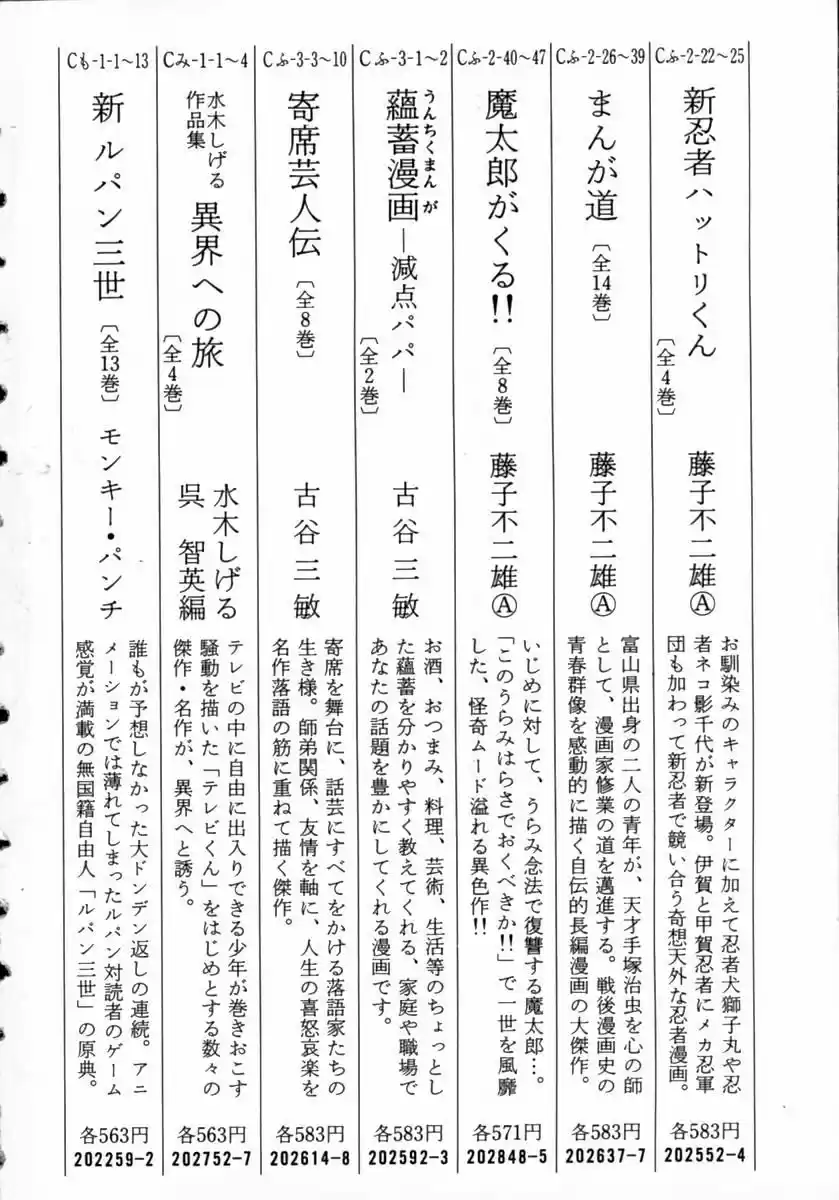 Cふ-2-22〜25
新忍者ハットリくん
〔全4巻〕
藤子不二雄Ⓐ
お馴染みのキャラクターに加えて忍者犬獅子丸や忍
者ネコ影千代が新登場。伊賀と甲賀忍者にメカ忍軍
団も加わって新忍者で競い合う奇想天外な忍者漫画。
各583円
202552-4
Cふ-2-26〜39
まんが道
〔全14巻〕
藤子不二雄Ⓐ
富山県出身の二人の青年が、天才手塚治虫を心の師
として、漫画家修業の道を邁進する。戦後漫画史の
青春群像を感動的に描く自伝的長編漫画の大傑作。
各583円
202637-7
Cふ-2-40〜47
魔太郎がくる!!
〔全8巻〕
藤子不二雄Ⓐ
いじめに対して、うらみ念法で復讐する魔太郎…。
「このうらみはらさでおくべきか!!」で一世を風靡
した、怪奇ムード溢れる異色作!!
各571円
202848-5
Cふ-3-1〜2
うんちくまんが
蘊蓄漫画―減点パパ―
〔全2巻〕
古谷三敏
お酒、おつまみ、料理、芸術、生活等のちょっとし
た蘊蓄を分かりやすく教えてくれる、家庭や職場で
あなたの話題を豊かにしてくれる漫画です。
各583円
202592-3
Cふ-3-3〜10
寄席芸人伝
〔全8巻〕
古谷三敏
寄席を舞台に、話芸にすべてをかける落語家たちの
生き様。師弟関係、友情を軸に、人生の喜怒哀楽を
名作落語の筋に重ねて描く傑作。
各583円
202614-8
Cみ-1-1〜4
水木しげる
作品集
異界への旅
〔全4巻〕
水木しげる
呉 智英編
テレビの中に自由に出入りできる少年が巻きおこす
騒動を描いた「テレビくん」をはじめとする数々の
傑作・名作が、異界へと誘う。
各563円
202752-7
Cも-1-1〜13
新ルパン三世
〔全13巻〕
モンキー・パンチ
誰もが予想しなかった大ドンデン返しの連続。アニ
メーションでは薄れてしまったルパン対読者のゲーム
感覚が満載の無国籍自由人「ルパン三世」の原典。
各563円
202259-2